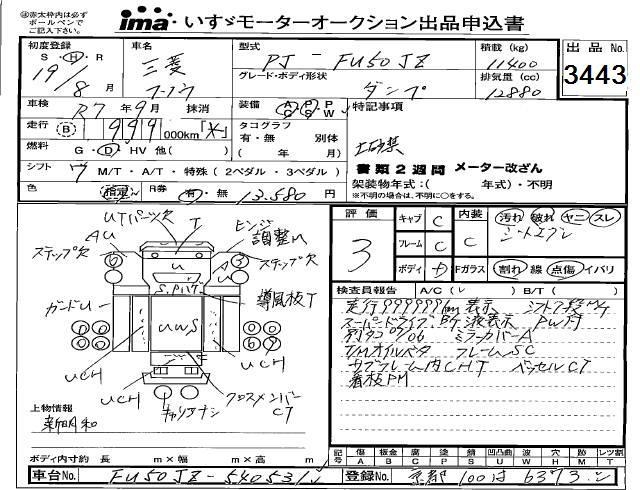 ㊟赤太枠内は必ず
ボールペンで
ご記入下さい。
ima いすゞモーターオークション出品申込書
初度登録 S・H・R 19/8月
車名 三菱 フーソウ
型式 PJ-FU50JZ
グレード・ボディ形状 ダンプ
積載(kg) 11400
排気量(cc) 12880
出品No. 3443
車検 R7年9月 抹消
装備 A/C P/S P/W S/W
特記事項
走行 B 999,000km 「*」
タコグラフ 有・無 別体 (年 月)
土砂禁
燃料 G・D・HV 他( )
書類2週間 メーター改ざん
シフト 7 M/T・A/T・特殊(2ペダル・3ペダル)
架装物年式:( 年式)・不明
※不明の場合は、不明に○をする。
色 R券 有・無 13,580円
UTパーツ欠 T
エンジン調整M
AU
ステップ欠
ステップ欠
U
A
S.Pバイザ
導風板T
ガードU
UWS
UCH
UCH
キャリアナシ
クロスメンバーCT
上物情報
新明和
ボディ内寸約 長 m×幅 m×高 m
評価 3
キャブ C
フレーム C
ボディ D
内装 C
汚れ 破れ ヤニ スレ
シートエプレ
Fガラス 割れ 線 点傷 イバリ
検査員報告 A/C( レ ) B/T( )
走行999999km表示 シフト7段M/T
スーパードライブ B/T液表示 PW付
列ウラ 05/06 ミラーカバーA
T/Mオイルベタ フレームSC
サブフレーム内CHT ベッセルCT
看板PM
記号 傷A 板金B 腐C 塗P 錆S 凹凸曲U 波W 穴H 跡M レツ割T
車台No. FU50JZ-540531
登録No. 京都 100 は 6373